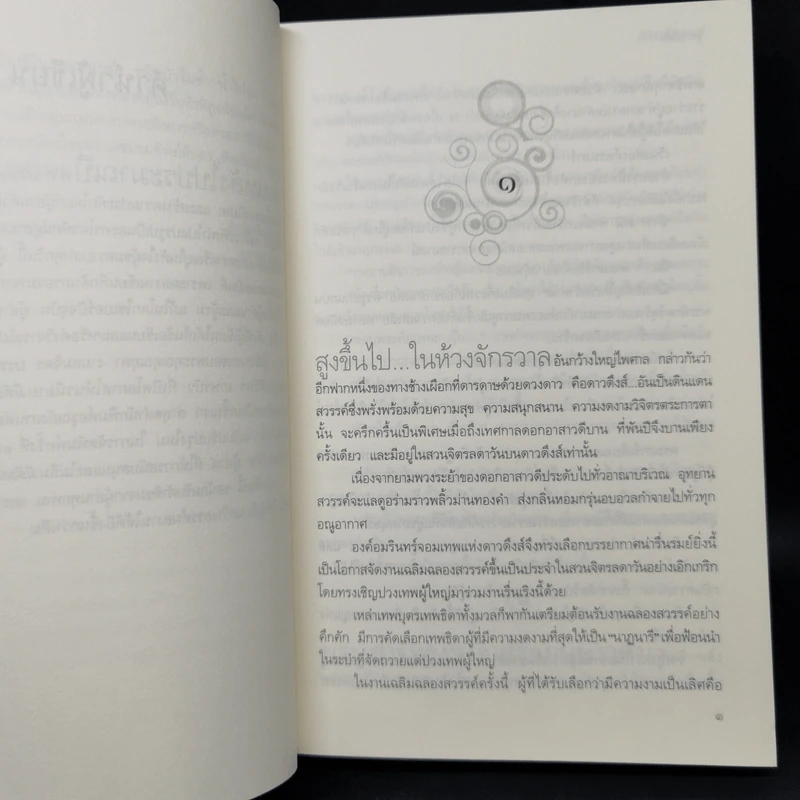 ๑
สูงขึ้นไป...ในห้วงจักรวาลอันกว้างใหญ่ไพศาล กล่าวกันว่า
อีกฟากหนึ่งของทางช้างเผือกที่ดารดาษด้วยดวงดาว คือดาวดึงส์...อันเป็นดินแดน
สวรรค์ซึ่งพรั่งพร้อมด้วยความสุข ความสนุกสนาน ความงดงามวิจิตรตระการตา
นั้น จะครึกครื้นเป็นพิเศษเมื่อถึงเทศกาลดอกอาสาวดีบาน ที่พันปีจึงบานเพียง
ครั้งเดียว และมีอยู่ในสวนจิตรลดาวันบนดาวดึงส์เท่านั้น
เนื่องจากยามพวงระย้าของดอกอาสาวดีประดับไปทั่วอาณาบริเวณ อุทยาน
สวรรค์จะแลดูอร่ามราวพลิ้วม่านทองคำ ส่งกลิ่นหอมกรุ่นอบอวลกำจายไปทั่วทุก
อณูอากาศ
องค์อมรินทร์จอมเทพแห่งดาวดึงส์จึงทรงเลือกบรรยากาศน่ารื่นรมย์ยิ่งนี้
เป็นโอกาสจัดงานเฉลิมฉลองสวรรค์ขึ้นเป็นประจำในสวนจิตรลดาวันอย่างเอิกเกริก
โดยทรงเชิญปวงเทพผู้ใหญ่มาร่วมงานรื่นเริงนี้ด้วย
เหล่าเทพบุตรเทพธิดาทั้งมวลก็พากันเตรียมต้อนรับงานฉลองสวรรค์อย่าง
คึกคัก มีการคัดเลือกเทพธิดาผู้ที่มีความงดงามที่สุดให้เป็น "นาฏนารี" เพื่อฟ้อนนำ
ในระบำที่จัดถวายแด่ปวงเทพผู้ใหญ่
ในงานเฉลิมฉลองสวรรค์ครั้งนี้ ผู้ที่ได้รับเลือกว่ามีความงามเป็นเลิศคือ
๑